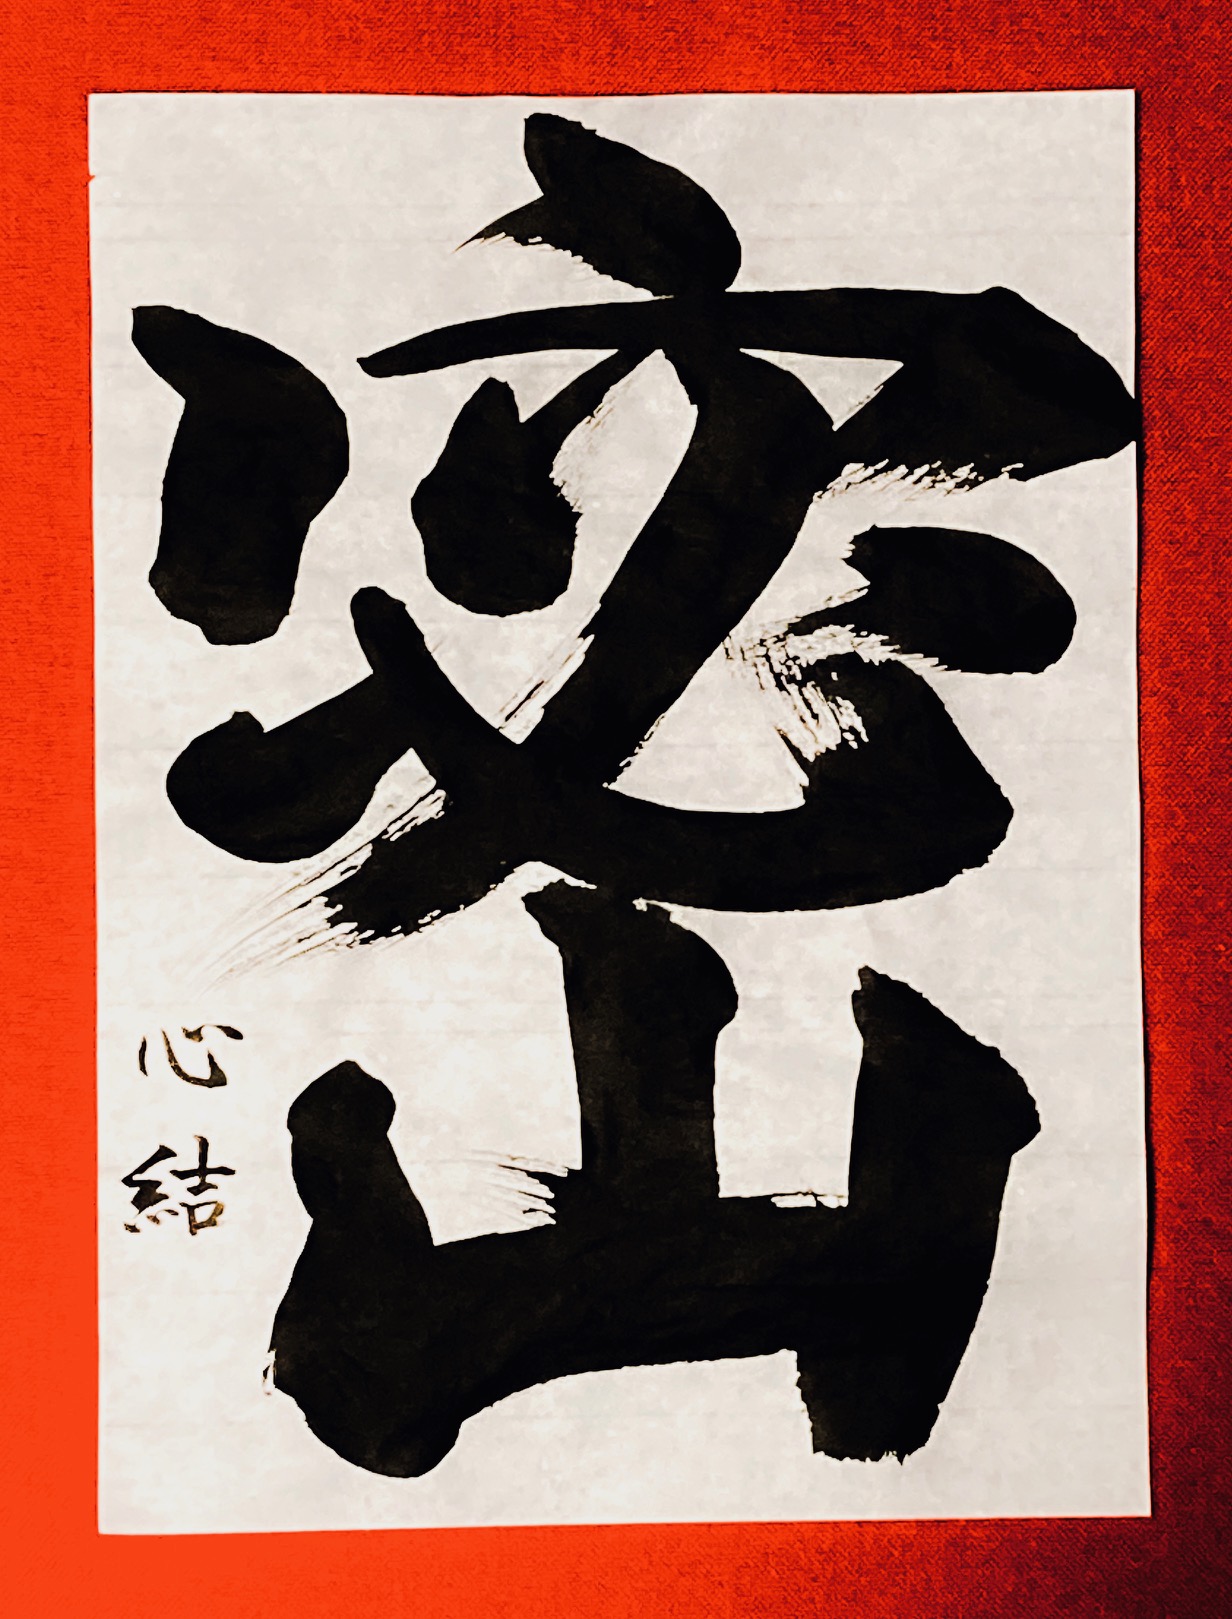 密
心結